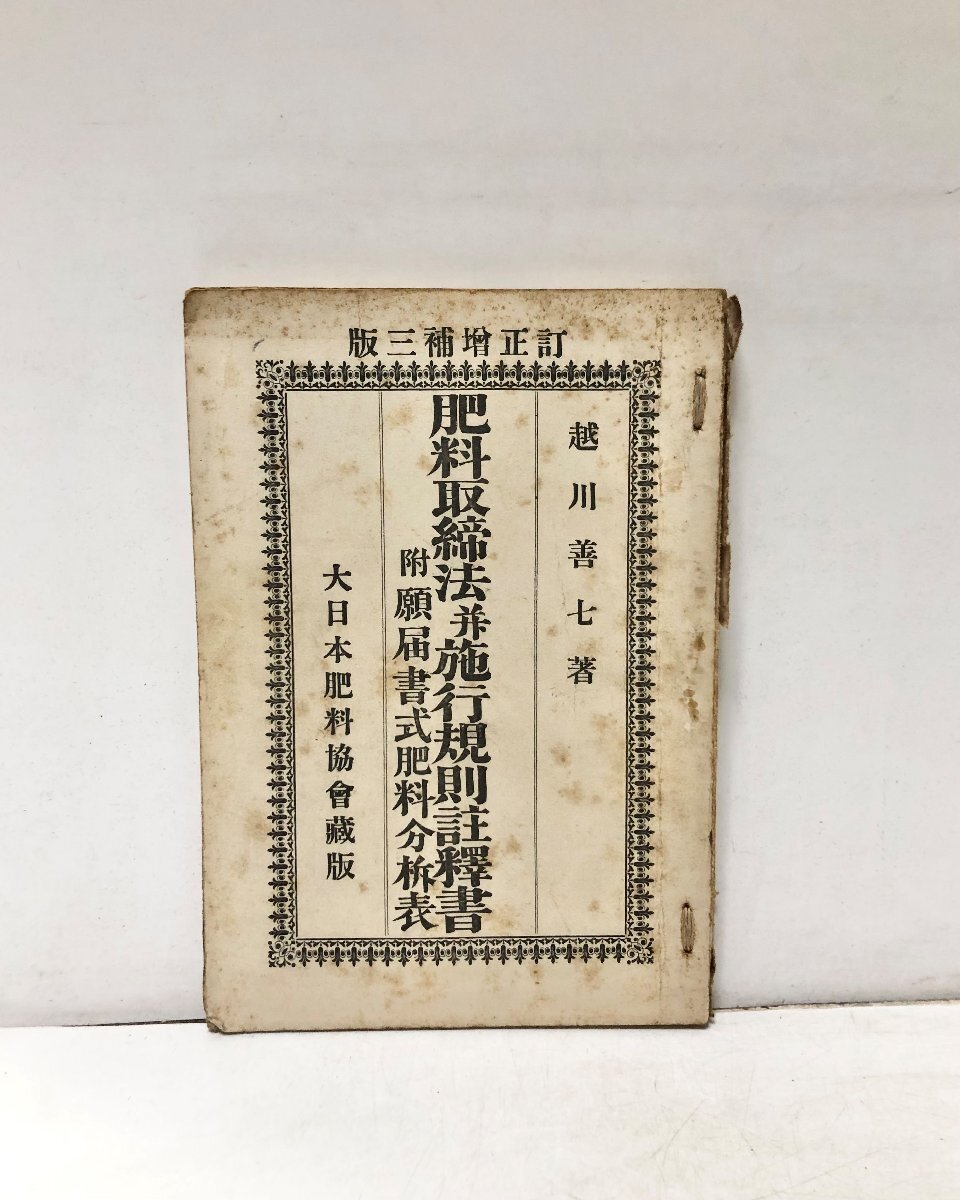 訂正增補三版
越川善七著
肥料取締法并施行規則註釋書
附願届書式肥料分析表
大日本肥料協會藏版